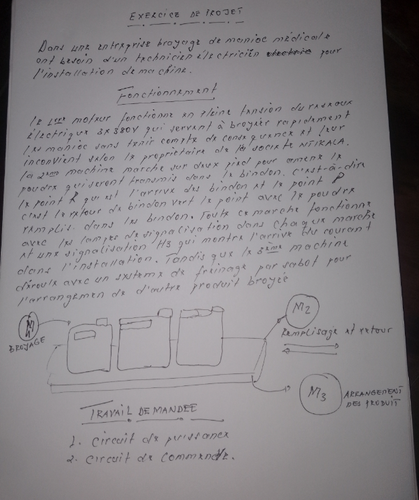 EXERCICE DE PROJET
Dans une entreprise broyage de manioc médicale
ont besoin d'un technicien électricien pour
l'installation de machine.
Fonctionnement
Le 1er moteur fonctionne en pleine tension du reseaux
électrique 3x380V qui servent à broyée rapidement
les manioc sans tenir compte de consequence et leur
inconvient selon le propriétaire de la societe
la 2eme machine marche sur deux pied pour amene le
poudre qui seront transmis dans le bindon, c'est-à-dire
le point qui est l'arrivé des bindon et le point P
c'est le retour de bindon vert le point avec le poudre
remplis dans les bindon. Toute ce marche fonctionne
avec les lampes de signalisation dans chaque marche
et une signalisation H5 qui montre l'arrivé du courant
dans l'installation. Tandis que le 3eme machine
déroule avec un systeme de freinage par sabot pour
l'arrangement de d'autre produit broyée
M1
BROYAGE
M2
Remplisage et retour
M3
ARRANGEMENT
DES PRODUIT
TRAVAIL DEMANDEE
1- Circuit de puissance
2- Circuit de commande.